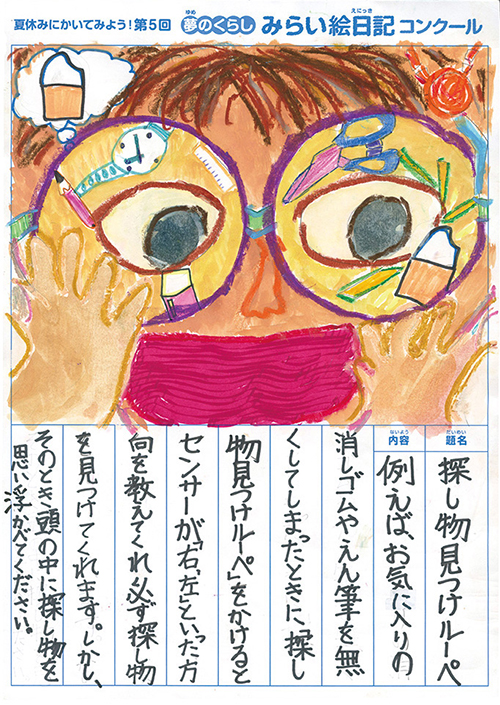 夏休みにかいてみよう!第5回 夢のくらし みらい絵日記 コンクール
ゆめ
えにっき
だいめい
題名
探し物見つけルーペ
ないよう
内容
例えば、お気に入りの
消しゴムやえん筆を無
くしてしまったときに「探し
物見つけルーペ」をかけると
センサーが「右、左」といった方
向を教えてくれ必ず探し物
を見つけてくれます。しかし、
そのとき頭の中に探し物を
思い浮かべてください。